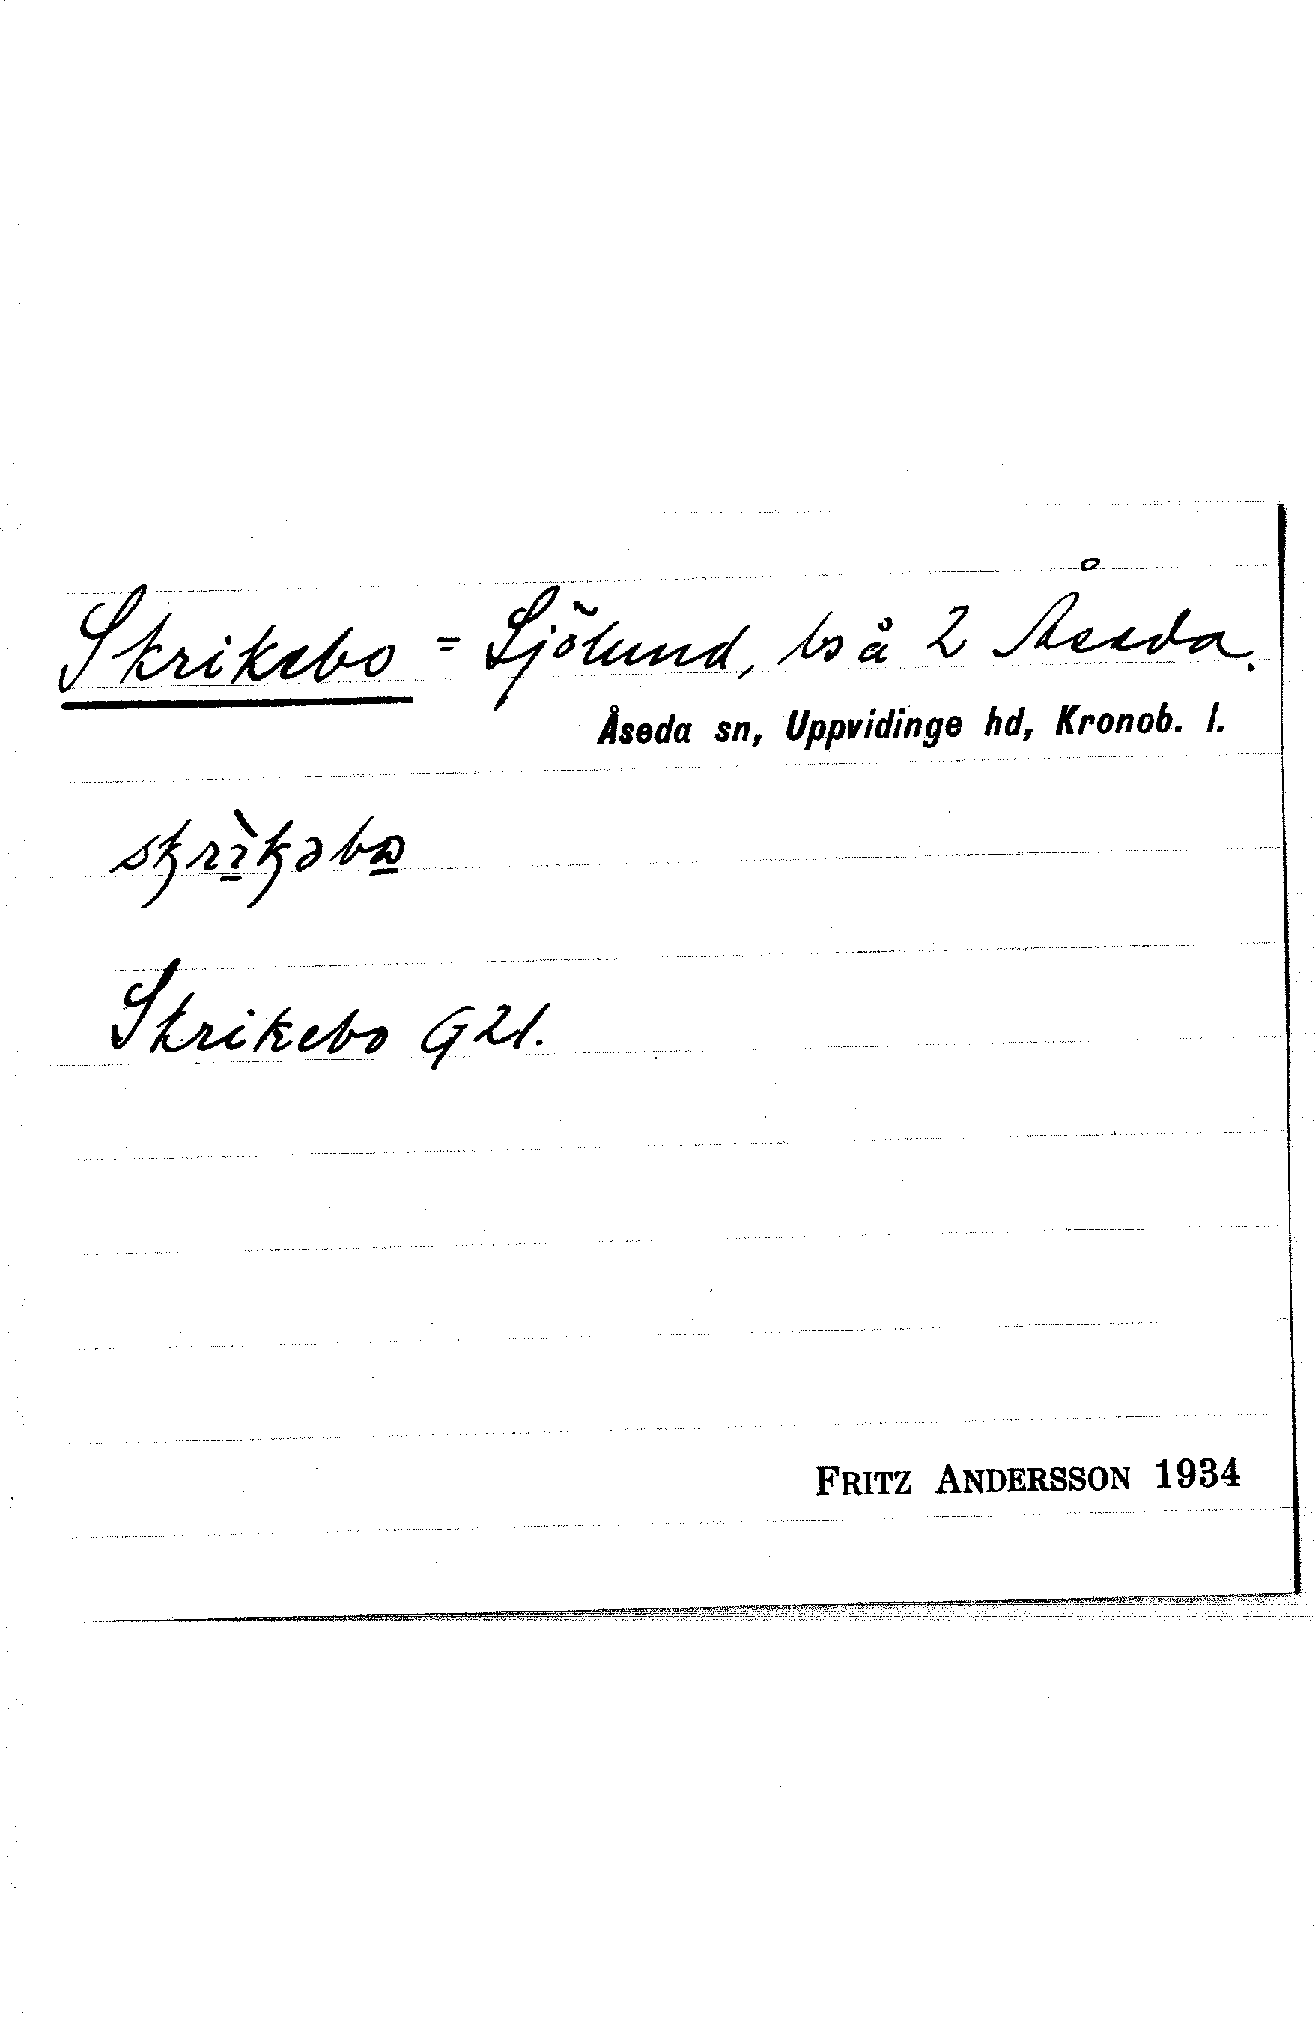 Skrikebo = Sjölund, ls å 2 Åseda.
Åseda sn, Uppvidinge hd, Kronob. l.
skrìkəbo
Skrikebo G21.
FRITZ ANDERSSON 1934